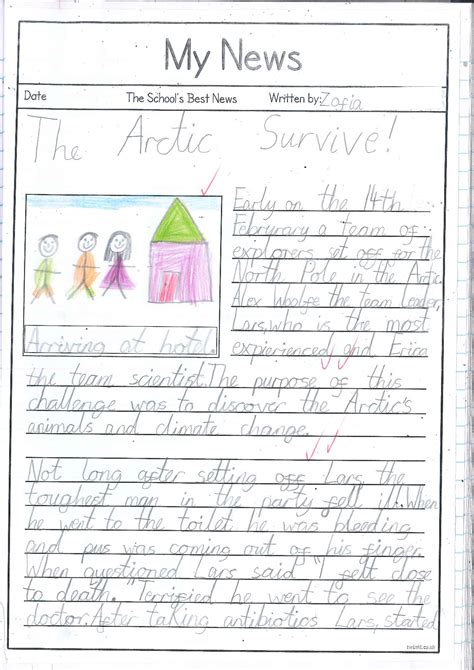 My News
Date The School's Best News Written by: Zofia
The Arctic Survive!
Early on the 14th
Februrary a team of
explorers set off for the
North Pole in the Arctic
Alex Woolfe the team leader,
Lars, who is the most
Arriving at hotel.
expierienced and Erica
the team scientist. The purpose of this
challenge was to discover the Arctic's
animals and climate change.
Not long after setting off Lars, the
toughest man in the party fell ill. When
he went to the toilet he was bleeding
and pus was coming out of his finger.
When questioned Lars said "I felt close
to death." Terrified he went to see the
doctor. After taking antibiotips Lars, started